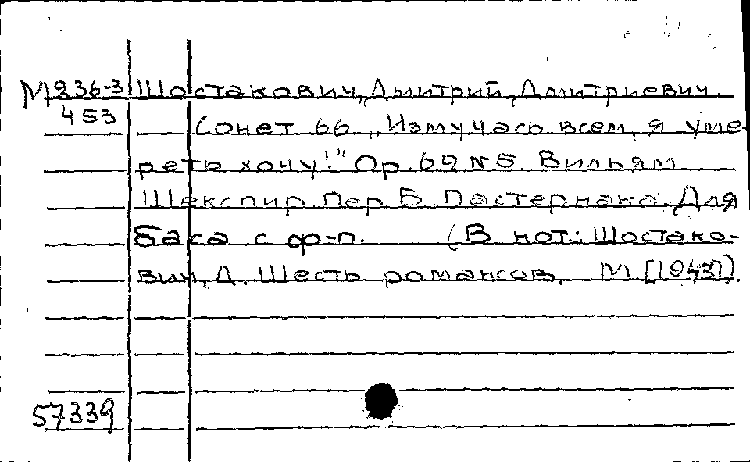 М236-3 Шостакович, Дмитрий Дмитриевич.
453 Сонет 66 „Измучась всем, я уме-
реть хочу!" Ор. 62 N 5. Вильям
Шекспир. Пер. Б. Пастернака. Для
баса с ф-п. (В нот.: Шостако-
вич, Д. Шесть романсов. М [1943]).
57339